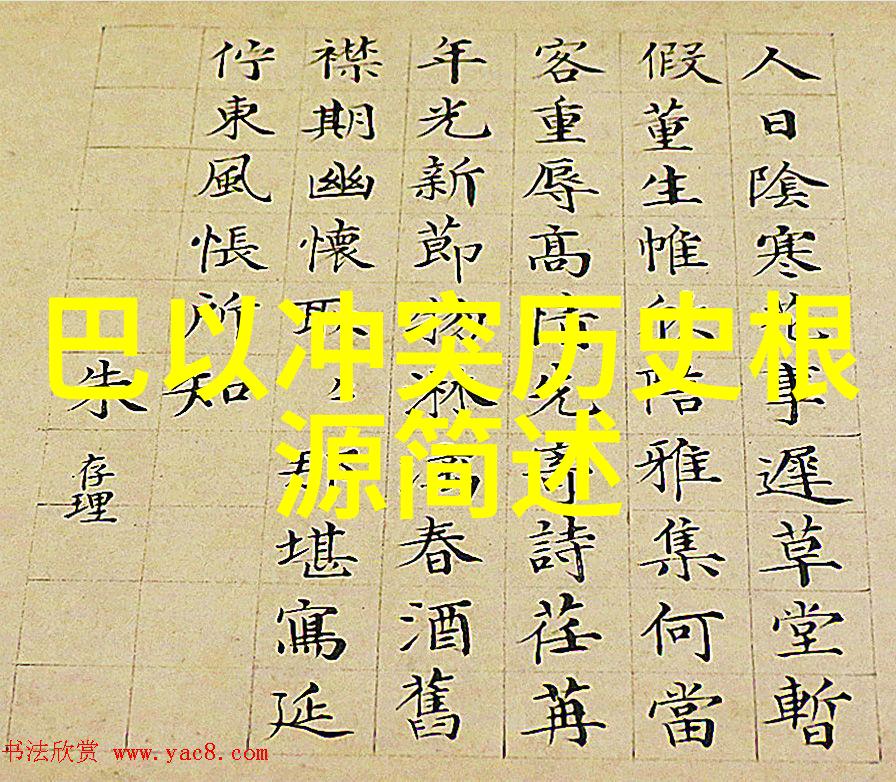 人日陰寒事遲草堂暫
假董生帷陪雅集何當
客重辱高先詩荏苒
年光新節物春酒舊
襟期幽懷堪寫延
佇東風悵所知
朱存理
巴以冲突历史根
源简述
书法欣赏 www.yac8.com